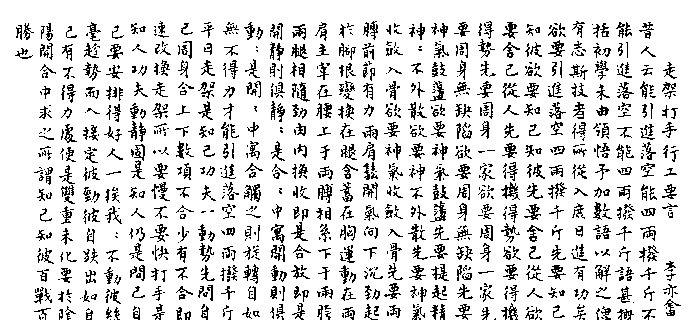 走架打手行工要言 李亦畬
昔人云能引進落空能四兩撥千斤不
能引進落空不能四兩撥千斤語甚賅
括初學未由領悟予加數語以解之俾
有志斯技者得所從入庶日進有功矣
欲要引進落空四兩撥千斤先要知己
知彼欲要知己知彼先要舍己從人欲
要舍己從人先要得機得勢欲要得機
得勢先要周身一家欲要周身一家先
要周身無缺陷欲要周身無缺陷先要
神氣鼓盪欲要神氣鼓盪先要提起精
神:不外散欲要神不外散先要神氣
收斂入骨欲要神氣收斂入骨先要兩
膊前節有力兩肩鬆開氣向下沉勁起
於腳根變換在腿含蓄在胸運動在兩
肩主宰在腰上于兩膊相系下于兩胯
兩腿相隨勁由內換收即是合放即是
開靜則俱靜:是合:中寓開動則俱
動:是開:中寓合觸之則旋轉自如
無不得力才能引進落空四兩撥千斤
平日走架是知己功夫一動勢先問自
己周身合上數項不合少有不合即
速改換走架所以要慢不要快打手是
知人功夫動靜固是知人仍是問己自
己要安排得好人一挨我:不動彼絲
毫趁勢而入接定彼勁彼自跌出如自
己有不得力處便是雙重未化要於陰
陽開合中求之所謂知己知彼百戰百
勝也